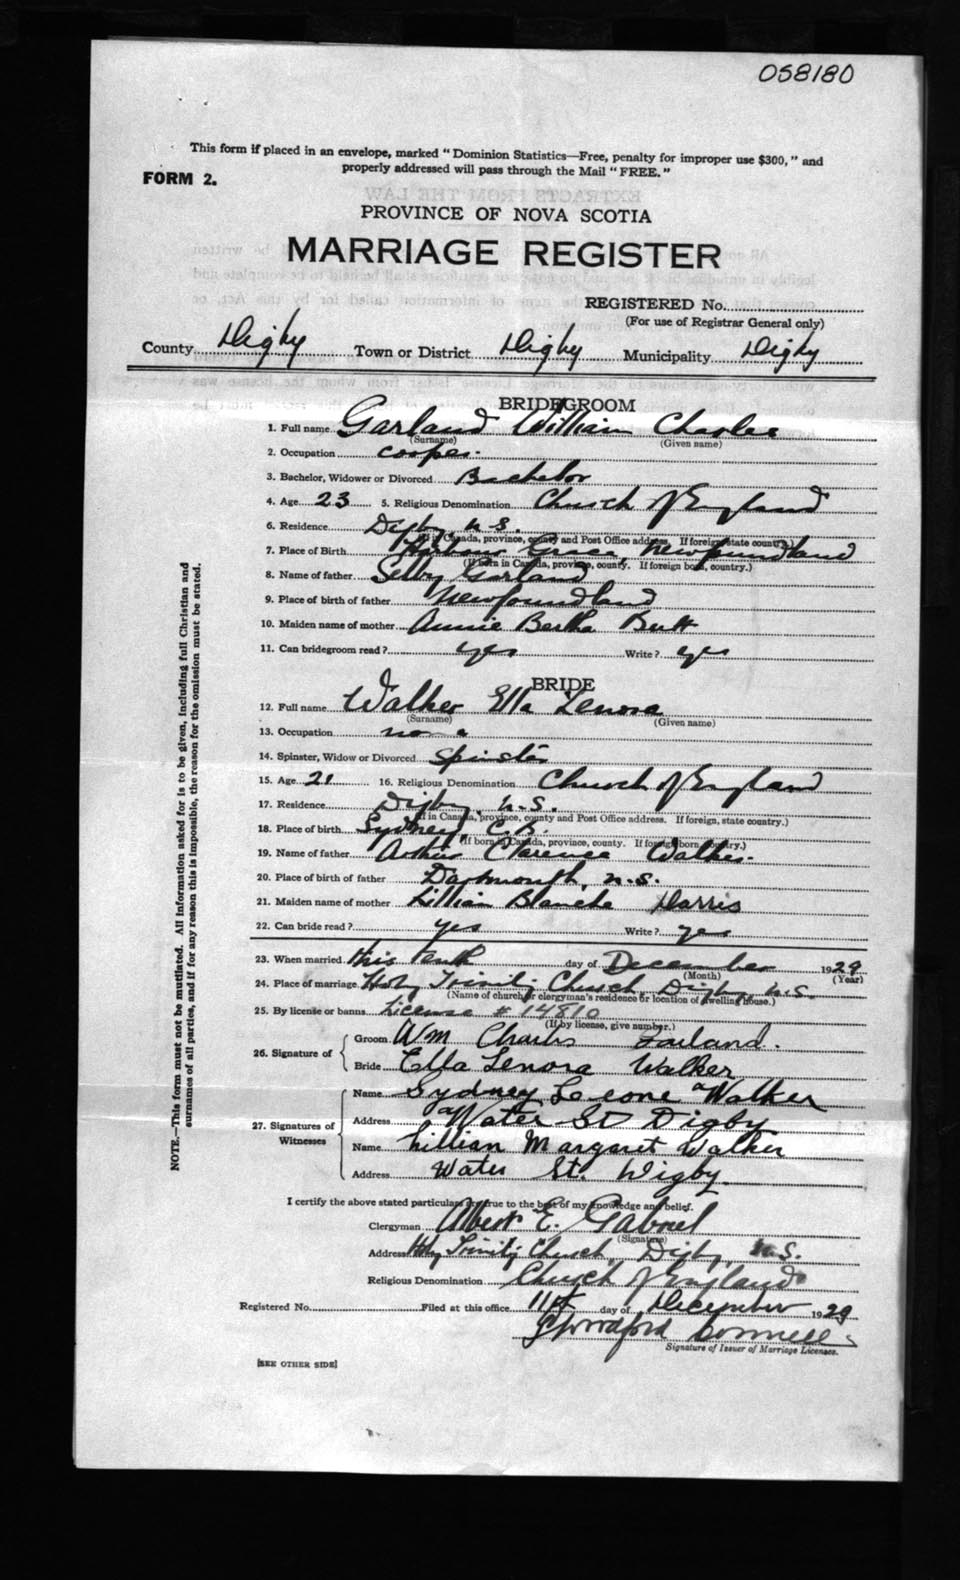 058180
This form if placed in an envelope, marked "Dominion Statistics—Free, penalty for improper use $300," and
properly addressed will pass through the Mail "FREE."
FORM 2.
PROVINCE OF NOVA SCOTIA
MARRIAGE REGISTER
REGISTERED No.
(For use of Registrar General only)
County Digby Town or District Digby Municipality Digby
BRIDEGROOM
1. Full name Garland William Charles
(Surname) (Given name)
2. Occupation cooper
3. Bachelor, Widower or Divorced Bachelor
4. Age 23 5. Religious Denomination Church of England
6. Residence Digby, N.S.
(If in Canada, province, county and Post Office address. If foreign, state country.)
7. Place of Birth Harbour Grace, Newfoundland
(If born in Canada, province, county. If foreign born, country.)
8. Name of father Selby Garland
9. Place of birth of father Newfoundland
10. Maiden name of mother Annie Bertha Butt
11. Can bridegroom read? yes Write? yes
BRIDE
12. Full name Walker Ella Lenora
(Surname) (Given name)
13. Occupation none
14. Spinster, Widow or Divorced Spinster
15. Age 21 16. Religious Denomination Church of England
17. Residence Digby, N.S.
(If in Canada, province, county and Post Office address. If foreign, state country.)
18. Place of birth Sydney, C.B.
(If born in Canada, province, county. If foreign born, country.)
19. Name of father Arthur Clarence Walker
20. Place of birth of father Dartmouth, N.S.
21. Maiden name of mother Lillian Blanche Harris
22. Can bride read? yes Write? yes
23. When married this tenth day of December 1929
(Month) (Year)
24. Place of marriage Holy Trinity Church, Digby N.S.
(Name of church or clergyman's residence or location of dwelling house.)
25. By license or banns License # 14810
(If by license, give number.)
26. Signature of Groom Wm Charles Garland.
Bride Ella Lenora Walker
27. Signatures of Witnesses Name Sydney Leone Walker
Address Water St Digby
Name Lillian Margaret Walker
Address Water St. Digby.
I certify the above stated particulars are true to the best of my knowledge and belief.
Clergyman Albert E. Gabriel
(Signature)
Address Holy Trinity Church, Digby, N.S.
Religious Denomination Church of England
Registered No. Filed at this office 11th day of December 1929
Signature of Issuer of Marriage Licenses.
[SEE OTHER SIDE]
NOTE.—This form must not be mutilated. All information asked for is to be given, including full Christian and
surnames of all parties, and if for any reason this is impossible, the reason for the omission must be stated.